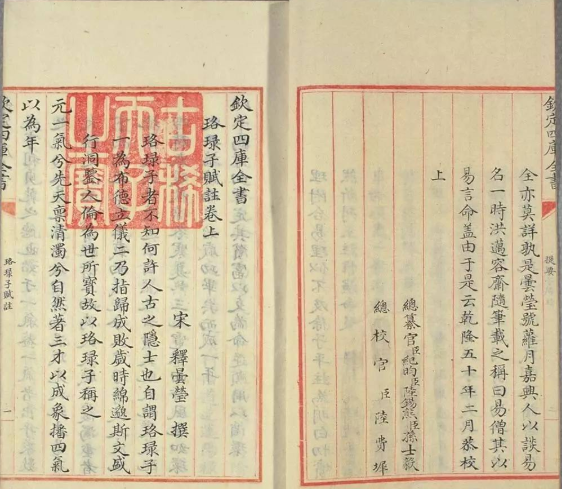 欽定四庫全書
提要
全亦莫詳孰是曇瑩號蘿月嘉興人以談易
名一時洪邁容齋隨筆載之稱曰易僧其以
易言命盖由于是云乾隆五十年二月恭校
上
總纂官臣紀昀臣陸錫熊臣孫士毅
總校官臣陸費墀
欽定四庫全書
珞琭子賦註卷上
宋 釋曇瑩 撰
珞琭子者不知何許人古之隱士也自謂珞琭子
一為布德立儀二乃指歸成敗歲時綿邈斯文盛
行洞鑒人倫為世所寶故以珞琭子稱之
元一氣兮先天禀清濁兮自然著三才以成象播四氣
以為年
欽定四庫全書
珞琭子賦註
一